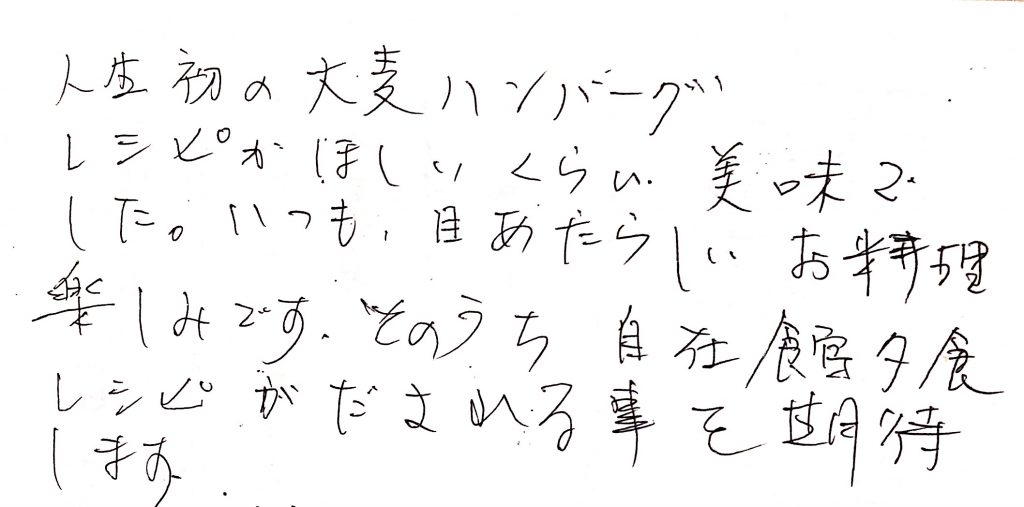 人生初の大麦ハンバーグ
レシピがほしいくらい美味で
した。いつも、目あたらしいお料理
楽しみです。そのうち自在館夕食
レシピがだされる事を期待
します